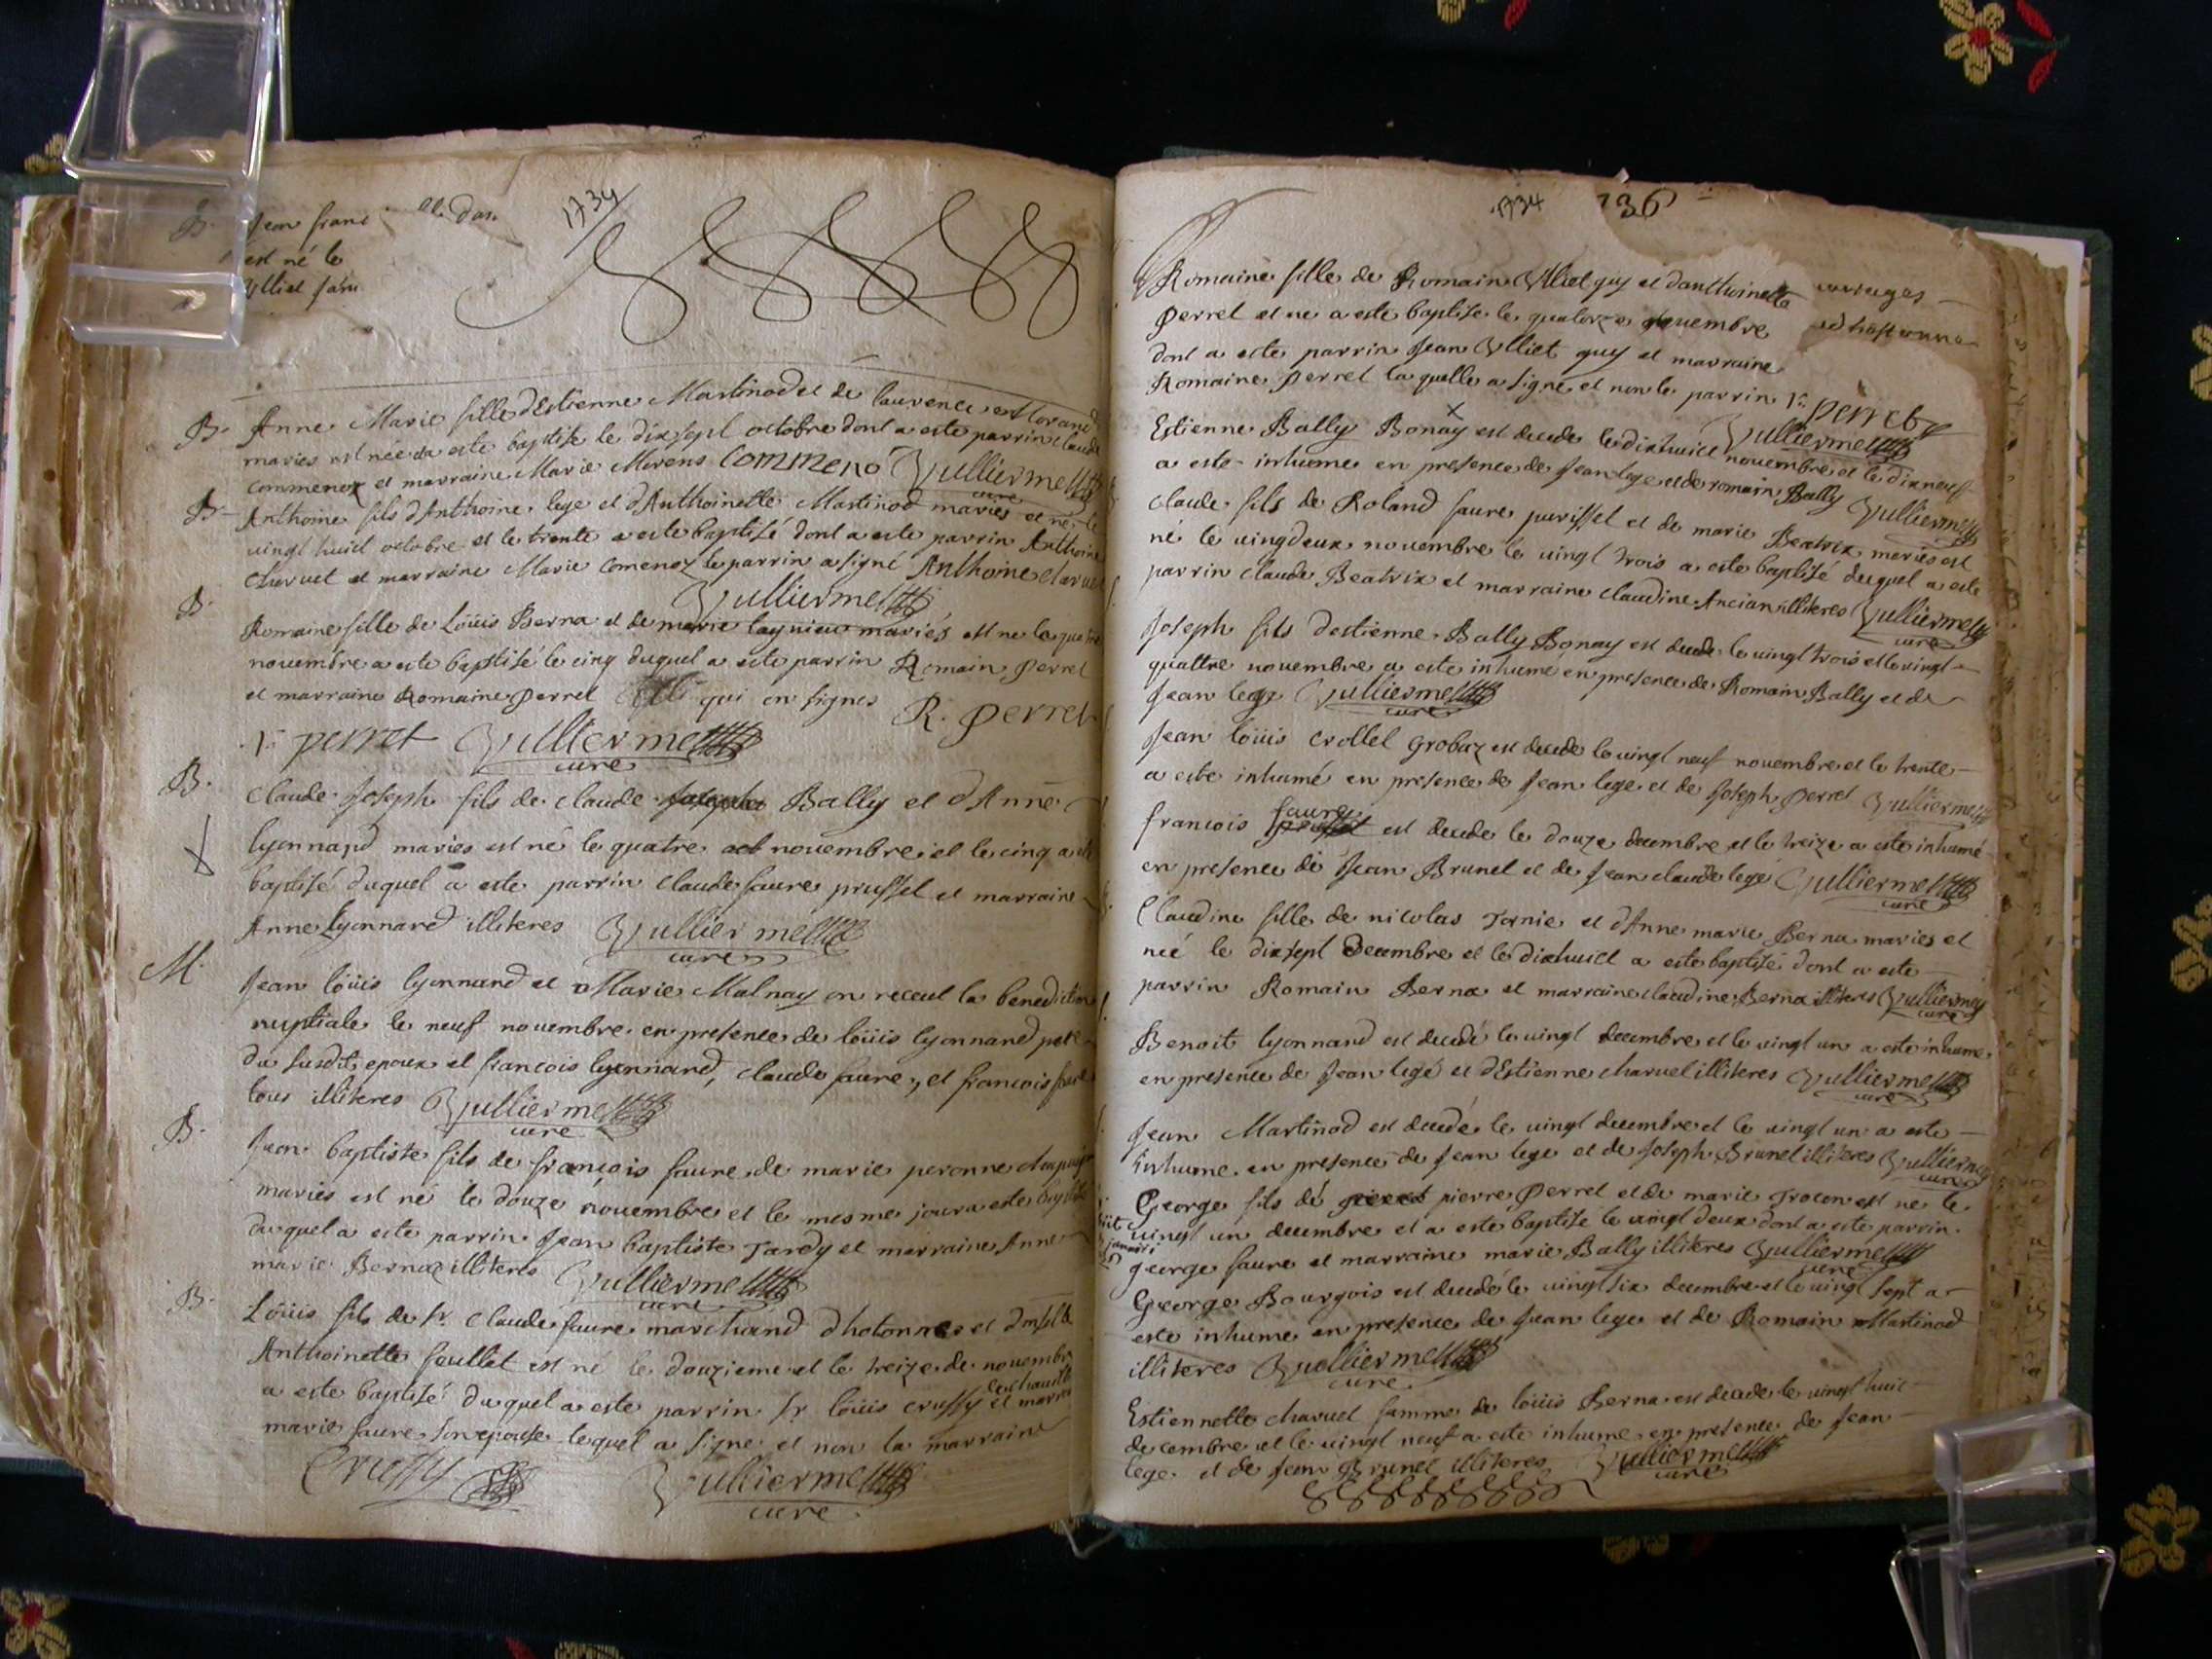 B. Jean franc
est né le
ulliet fam
1734
B. Anne Marie fille dEstienne Martinod et de laurence
maries est née a este baptise le dixsept octobre dont a este parrin claude
commenoz et marraine Marie Mivens Commeno Vulliermet
curé
B. Anthoine fils dAnthoine lege et dAnthoinette Martinod maries est né le
vingt huict octobre et le trente a este baptisé dont a este parrin Anthoine
charvet et marraine Marie Comenoz le parrin a signé Anthoine charvet
Vulliermet
B. Romaine fille de Loüis Berna et de marie maries est ne le quatre
novembre a este baptisé le cinq duquel a este parrin Romain Perret
et marraine Romaine Perret qui on signes R. Perret
r. perret Vulliermet
curé
B. Claude Joseph fils de claude Bally et dAnne
lyonnard maries est né le quatre novembre et le cinq a este
baptisé duquel a este parrin claude faure prussel et marraine
Anne Lyonnard illiteres Vulliermet
curé
M. Jean loüis lyonnard et Marie Malnay on receut la benediction
nuptiale le neuf novembre en presence de loüis lyonnard pere
du susdit epoux et francois lyonnard, claude faure, et francois faure
tous illiteres Vulliermet
curé
B. Jean baptiste fils de françois faure de marie peronne
maries est né le douze novembre et le mesme jour a este baptisé
duquel a este parrin Jean baptiste Tardy et marraine Anne
marie Bernaz illiteres Vulliermet
curé
B. Loüis fils de sr. claude faure marchand dhotonnes et dmslle
Anthoinette feullet est né le douzieme et le treize de novembre
a este baptisé duquel a este parrin sr loüis crussy et marraine
marie faure son epouse lequel a signe et non la marraine
Crussy Vulliermet
curé
1734 136
Romaine fille de Romain Vlliet guy et danthoinette
Perret et ne a este baptise le quatorze novembre
dont a este parrin Jean Vlliet guy et marraine
Romaine perret laquelle a signe et non le parrin r. perret
Vulliermet
Estienne Bally Bonay est decede le dixhuict novembre et le dixneuf
a este inhume en presence de Jean lege et de romain Bally Vulliermet
Claude fils de Roland faure purissel et de marie Beatrix maries est
né le vingdeux novembre le vingt trois a este baptisé duquel a este
parrin claude Beatrix et marraine claudine Ancian illiteres Vulliermet
curé
Joseph fils destienne Bally Bonay est decede le vingt trois et le vingt
quattre novembre a este inhume en presence de Romain Bally et de
Jean lege Vulliermet
curé
Jean loüis crollet grobaz est decede le vingt neuf novembre et le trente
a este inhumé en presence de Jean lege et de Joseph perret Vulliermet
francois faure est decede le douze decembre et le treize a este inhumé
en presence de Jean Brunel et de Jean claude legé Vulliermet
curé
Claudine fille de nicolas Tornie et dAnne marie Berna maries et
neé le dixsept Decembre et le dixhuict a este baptisé dont a este
parrin Romain Berna et marraine claudine Berna illiteres Vulliermet
curé
Benoit lyonnard est decedé le vingt decembre et le vingt un a este inhume
en presence de Jean legé et dEstienne charvet illiteres Vulliermet
curé
Jean Martinod est decedé le vingt decembre et le vingt un a este
inhume en presence de Jean lege et de Joseph Brunel illiteres Vulliermet
curé
George fils de pierre Perret et de marie Trocon est ne le
vingt un decembre et a este baptisé le vingt deux dont a este parrin
george faure et marraine marie Bally illiteres Vulliermet
curé
George Bourgois est decedé le vingt six decembre et le vingt sept a
este inhume en presence de Jean lege et de Romain Martinod
illiteres Vulliermet
curé
Estiennette charvet famme de loüis Berna est decede le vingt huit
decembre et le vingt neuf a este inhume en presence de Jean
lege et de Jean Brunel illiteres Vulliermet
curé